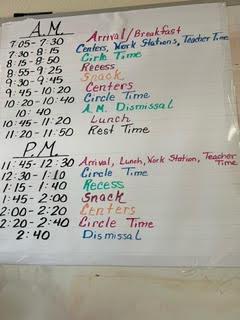 A.M.
7:05 - 7:30 Arrival/Breakfast
7:30 - 8:15 Centers, Work Stations, Teacher Time
8:15 - 8:50 Circle Time
8:55 - 9:25 Recess
9:30 - 9:45 Snack
9:45 - 10:20 Centers
10:20 - 10:40 Circle Time
10:40 A.M. Dismissal
10:45 - 11:20 Lunch
11:20 - 11:50 Rest Time
P.M.
11:45 - 12:30 Arrival, Lunch, Work Station, Teacher Time
12:30 - 1:10 Circle Time
1:15 - 1:40 Recess
1:45 - 2:00 Snack
2:00 - 2:20 Centers
2:20 - 2:40 Circle Time
2:40 Dismissal